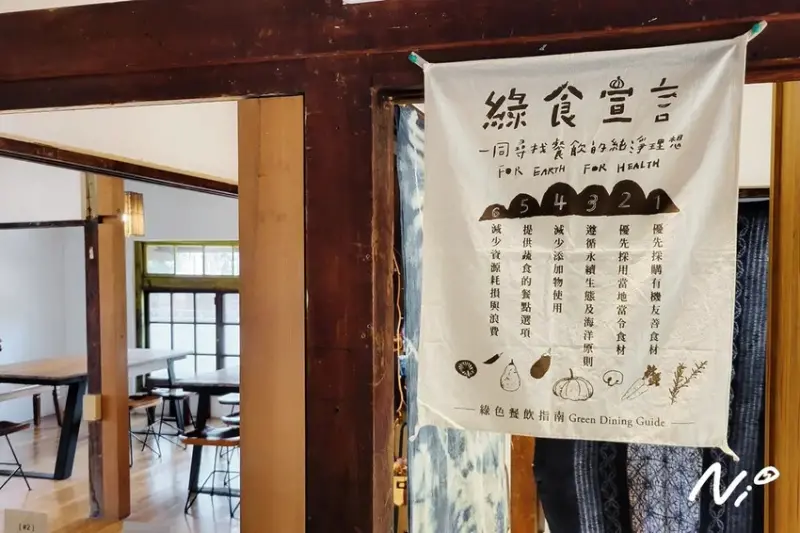 綠食宣言
一同尋找餐飲的純淨理想
FOR EARTH FOR HEALTH
1 優先採購有機友善食材
2 優先採用當地當令食材
3 遵循永續生態及海洋原則
4 減少添加物使用
5 提供蔬食的餐點選項
6 減少資源耗損與浪費
綠色餐飲指南 Green Dining Guide
[#2]
Nio